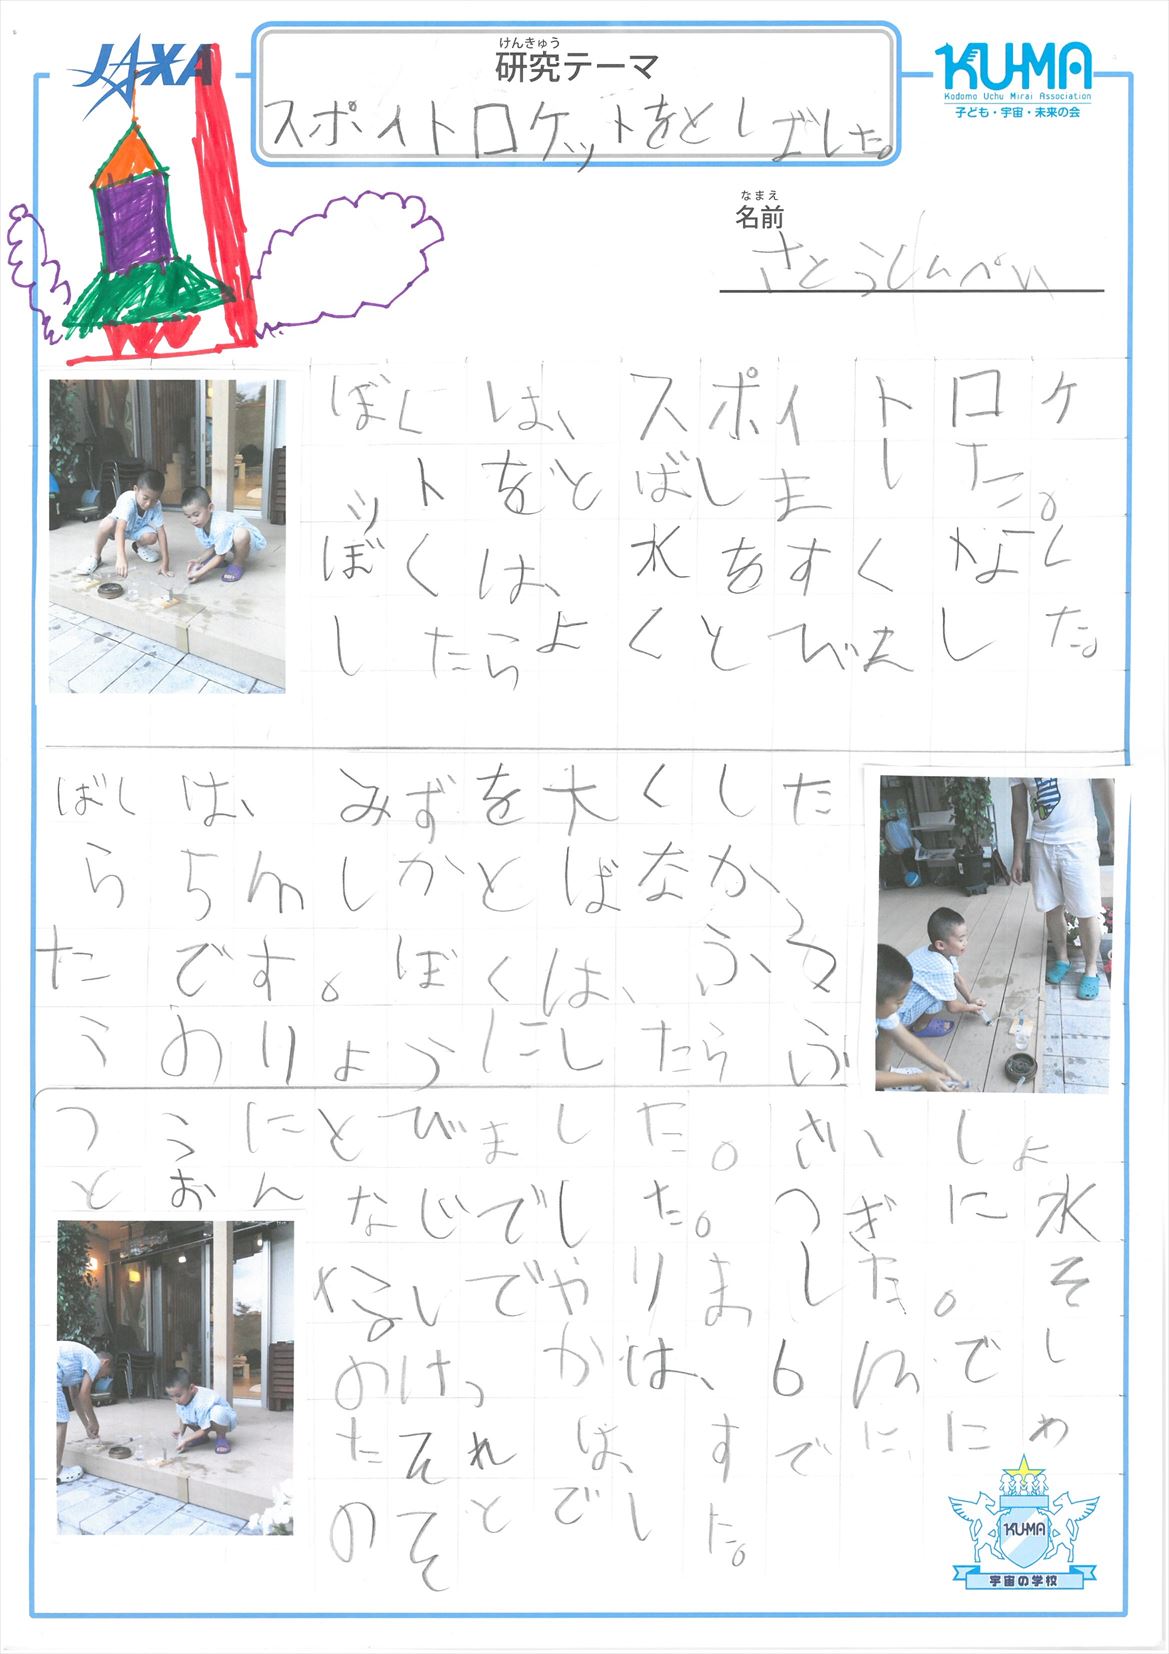 JAXA
けんきゅう
研究テーマ
KU-MA
Kodomo Uchu Mirai Association
子ども・宇宙・未来の会
スポイトロケットをとしばした。
なまえ
名前
さとうしんぺい
ぼくは、スポイトロケ
ットをとばしました。
ぼくは、水をすくなく
したらよくとびました。
ぼしは、みずを大くした
ら5mしかとばなか
たです。ぼくは、ふつ
うのりょうにしたらふ
つうにとびました。さいしょ
とおんなじでした。つぎに水
なしでやりました。そ
のけっかは、6mでし
たそれは、すでににわ
のそとでした。
KU-MA
宇宙の学校